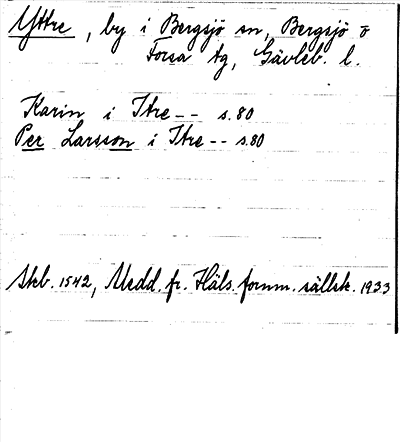 Yttre, by i Bergsjö sn, Bergsjö o
Forsa tg, Gävleb. l.
Karin i Itre -- s. 80
Per Larsson i Itre -- s. 80
Skb. 1542, Medd. fr. Häls. fornm. sällsk. 1933